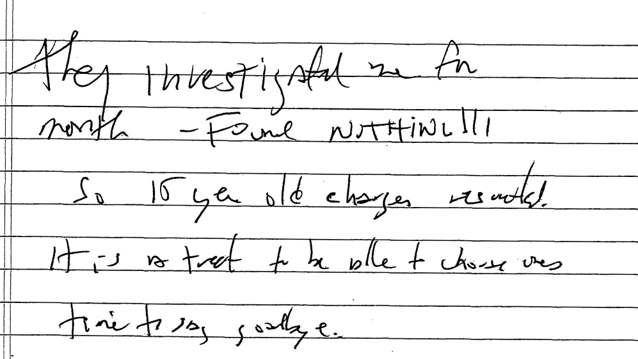 They investigated me for
month - Found NOTHING!!!
So 15 year old charges resulted.
It is a treat to be able to choose ones
time to say goodbye.